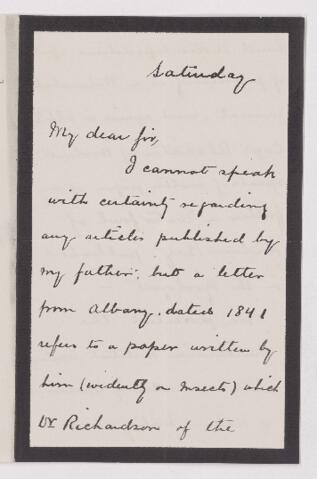 Saturday
My dear Sir,
I cannot speak
with certainty regarding
any articles published by
my father; but a letter
from Albany, dated 1841
refers to a paper written by
him (evidently on Insects) which
Dr Richardson of the